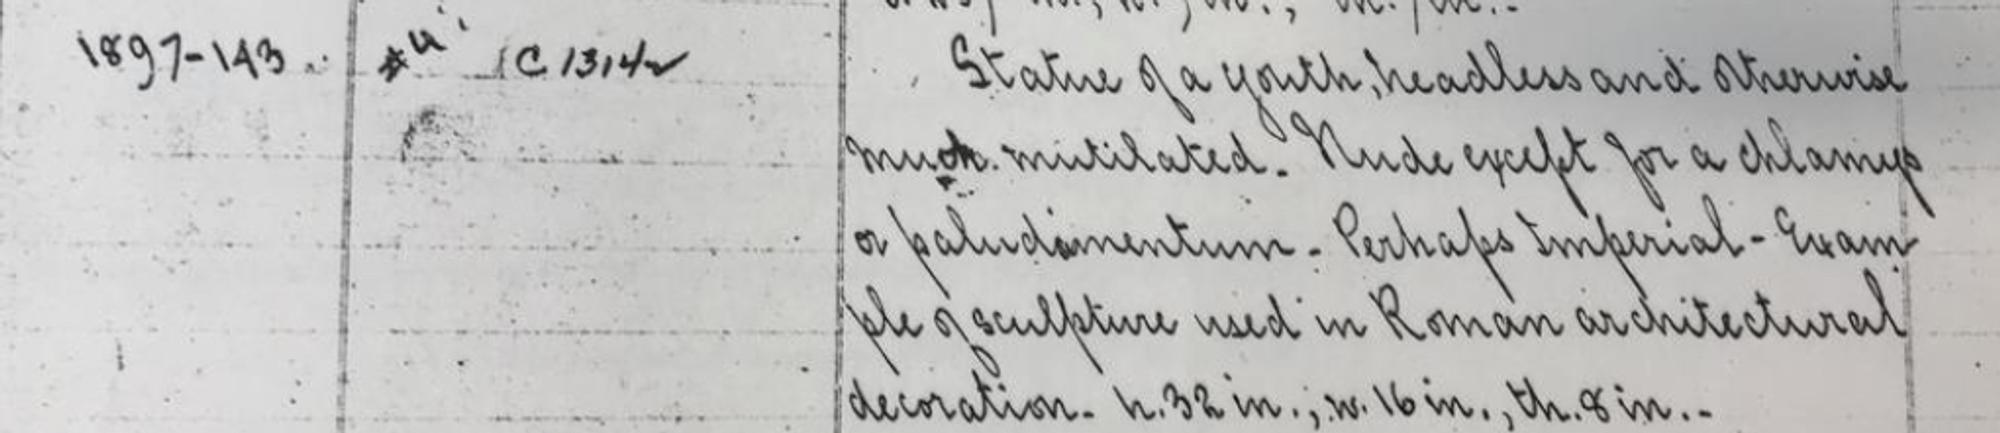 1897-143. #4 C 1314 Statue of a youth, headless and otherwise
much mutilated. Nude except for a chlamys
or paludamentum - Perhaps Imperial - Exam
ple of sculpture used in Roman architectural
decoration - h. 32 in.; w. 16 in., th. 8 in. -